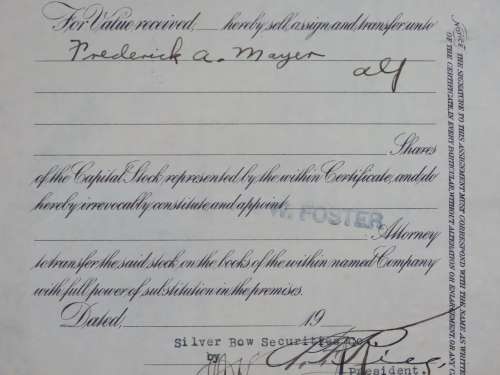 For Value received, hereby sell, assign and transfer unto
Frederick A. Mayer
all
Shares
of the Capital Stock represented by the within Certificate, and do
hereby irrevocably constitute and appoint
W. FOSTER
Attorney
to transfer the said stock on the books of the within named Company
with full power of substitution in the premises.
Dated, 19
Silver Bow Securities Co.
by
President.
NOTICE THE SIGNATURE TO THIS ASSIGNMENT MUST CORRESPOND WITH THE NAME AS WRITTEN
OF THE CERTIFICATE, IN EVERY PARTICULAR, WITHOUT ALTERATION OR ENLARGEMENT, OR ANY